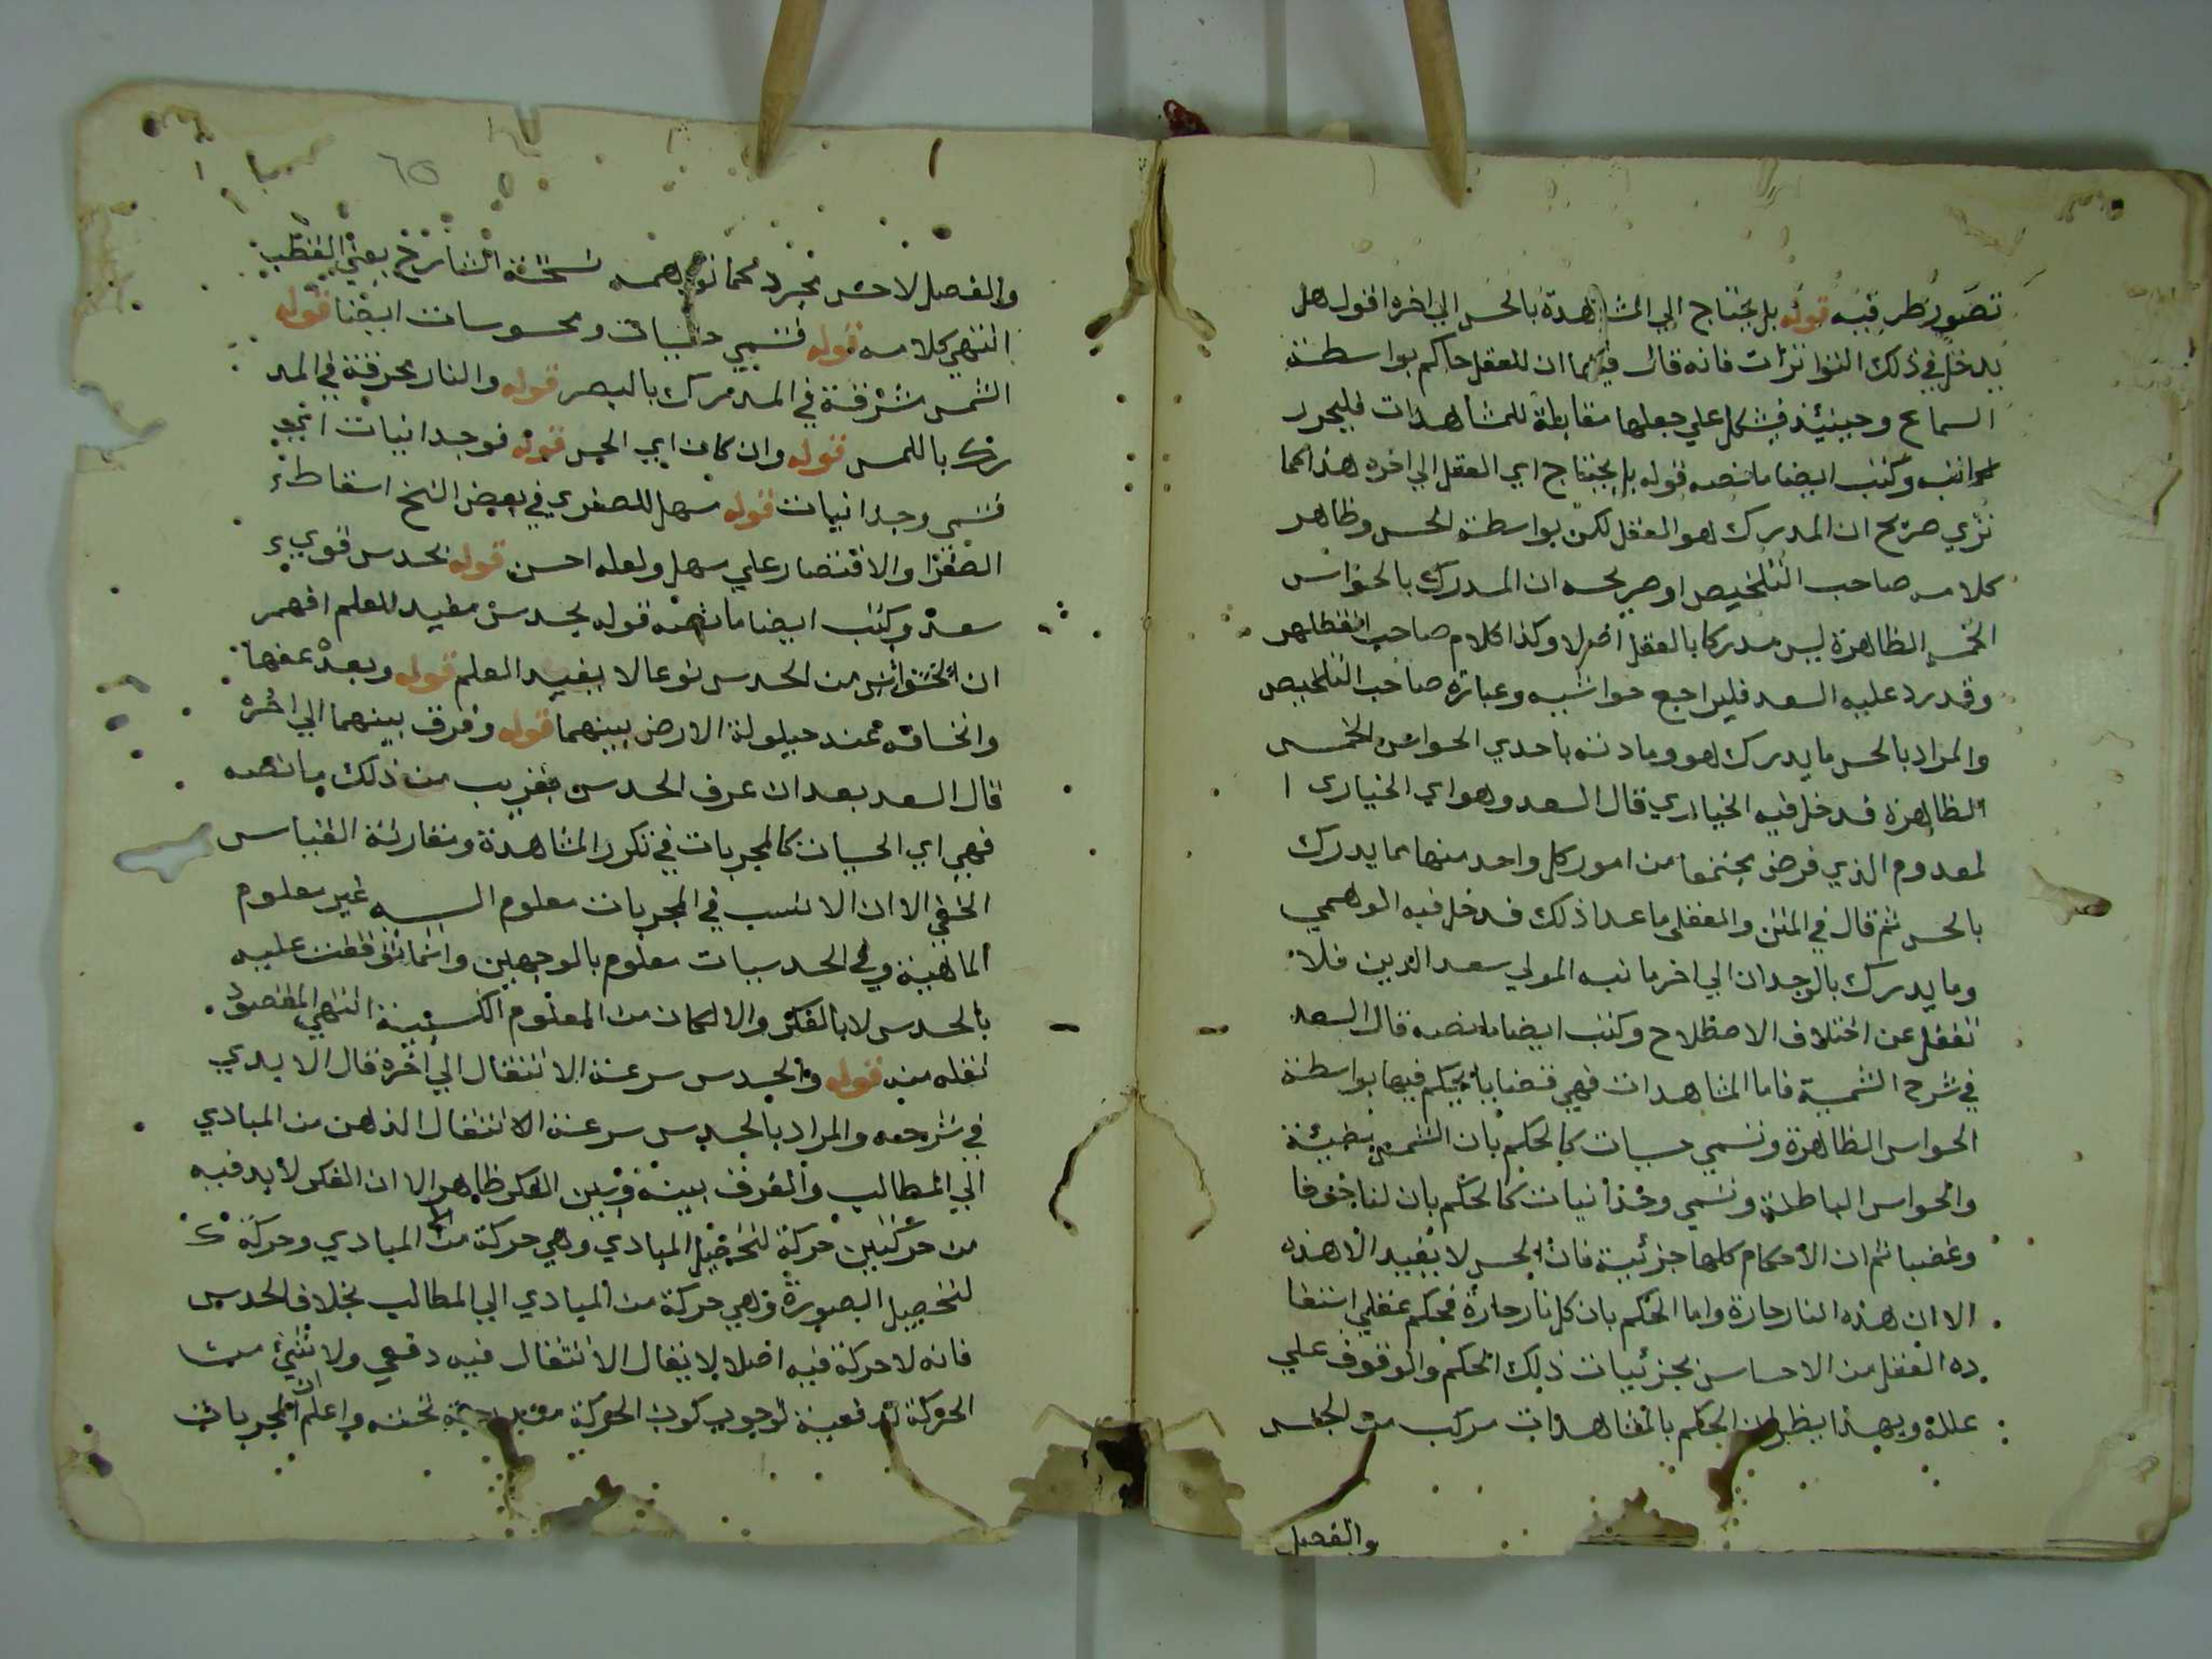 تصور طرفيه قوله بل يحتاج الي المشاهدة بالحس الي اخره اقول هل
يدخل في ذلك التواترات فانه قال فيها ان للعقل حاكم بواسطة
السمايع وحينئذ فيشكل علي جعلها مقابلة للمشاهدات فليحرر
كاتبه وكتب ايضا ما نصه قوله بل يحتاج اي العقل الي اخره هذا كما
تري صريح ان المدرك هو العقل لكن بواسطة الحس وظاهر
كلامه صاحب التلخيص او صريحه ان المدرك بالحواس
الخمسه الظاهرة ليس مدركا بالعقل اصلا وكذا كلام صاحب
وقد رد عليه السعد فليراجع حواشيه وعبارة صاحب التلخيص
والمراد بالحس ما يدرك هو ومادته باحدي الحواس الخمس
الظاهرة فدخل فيه الخيالي قال السعد وهو اي الخيالي ا
لمعدوم الذي فرض مجتمعا من امور كل واحد منها مما يدرك
بالحس ثم قال في المتن والعقلي ما عدا ذلك فدخل فيه الوهمي
وما يدرك بالوجدان الي اخر ما نبه المولي سعد الدين فلا
تغفل عن اختلاف الاصطلاح وكتب ايضا ما نصه قال السعد
في شرح الشمسية فاما المشاهدات فهي قضايا يحكم فيها بواسطة
الحواس الظاهرة وتسمي حسيات كالحكم بان الشمس مضيئة
والحواس الباطنة وتسمي وجدانيات كالحكم بان لنا خوفا
وغضبا ثم ان الاحكام كلها جزئية فان الحس لا يفيد الا هذه
الا ان هذه النار حارة واما الحكم بان كل نار حارة فحكم عقلي استفا
ده العقل من الاحساس بجزئيات ذلك الحكم والوقوف علي
علله وبهذا يظهر ان الحكم بالمشاهدات مركب من الحس
والفصل
والفصل لا حس مجرد كما توهمه نسخة الشارح يعني القطب
انتهي كلامه قوله فتسمي حسيات ومحسوسات ايضا قوله
الشمس مشرقة في المدرك بالبصر قوله والنار محرقة في المد
رك باللمس قوله وان كان اي الحس قوله فوجدانيات اي
فتسمي وجدانيات قوله سهل للصفري في بعض النسخ اسقاط
الصفرا والاقتصار علي سهل ولعله احسن قوله بحدس قوي
سعد وكتب ايضا ما نصه قوله بحدس مفيد للعلم افهم
ان من الحدس نوعا لا يفيد العلم قوله وبعد عنها
وانخسافه عند حيلولة الارض بينهما قوله وفرق بينهما الي اخره
قال السعد بعد ان عرف الحدس بقريب من ذلك ما نصه
فهي اي الحسيات كالمجربات في تكرر المشاهدة ومقارنة القياس
الخفي الا ان السبب في المجربات معلوم السببية غير معلوم
الماهية وفي الحدسيات معلوم بالوجهين وانما توقفت عليه
بالحدس لا بالفكر والا لكان من المعلوم الكسبية انتهي المقصود
نقله منه قوله والحدس سرعة الانتقال الي اخره قال الابدي
في شرحه والمراد بالحدس سرعة الانتقال الذهن من المبادي
الي المطالب والفرق بينه وبين الفكر ظاهر الا ان الفكر لابد فيه
من حركتين حركة لتحصيل المبادي وهي حركة من المبادي وحركة
لتحصيل الصورة وهي حركة من المبادي الي المطالب بخلاف الحدس
فانه لا حركة فيه اصلا لا يقال الانتقال فيه دفعي ولا شئ من
الحركة بدفعية لوجوب كون الحركة واعلم ان المجربات